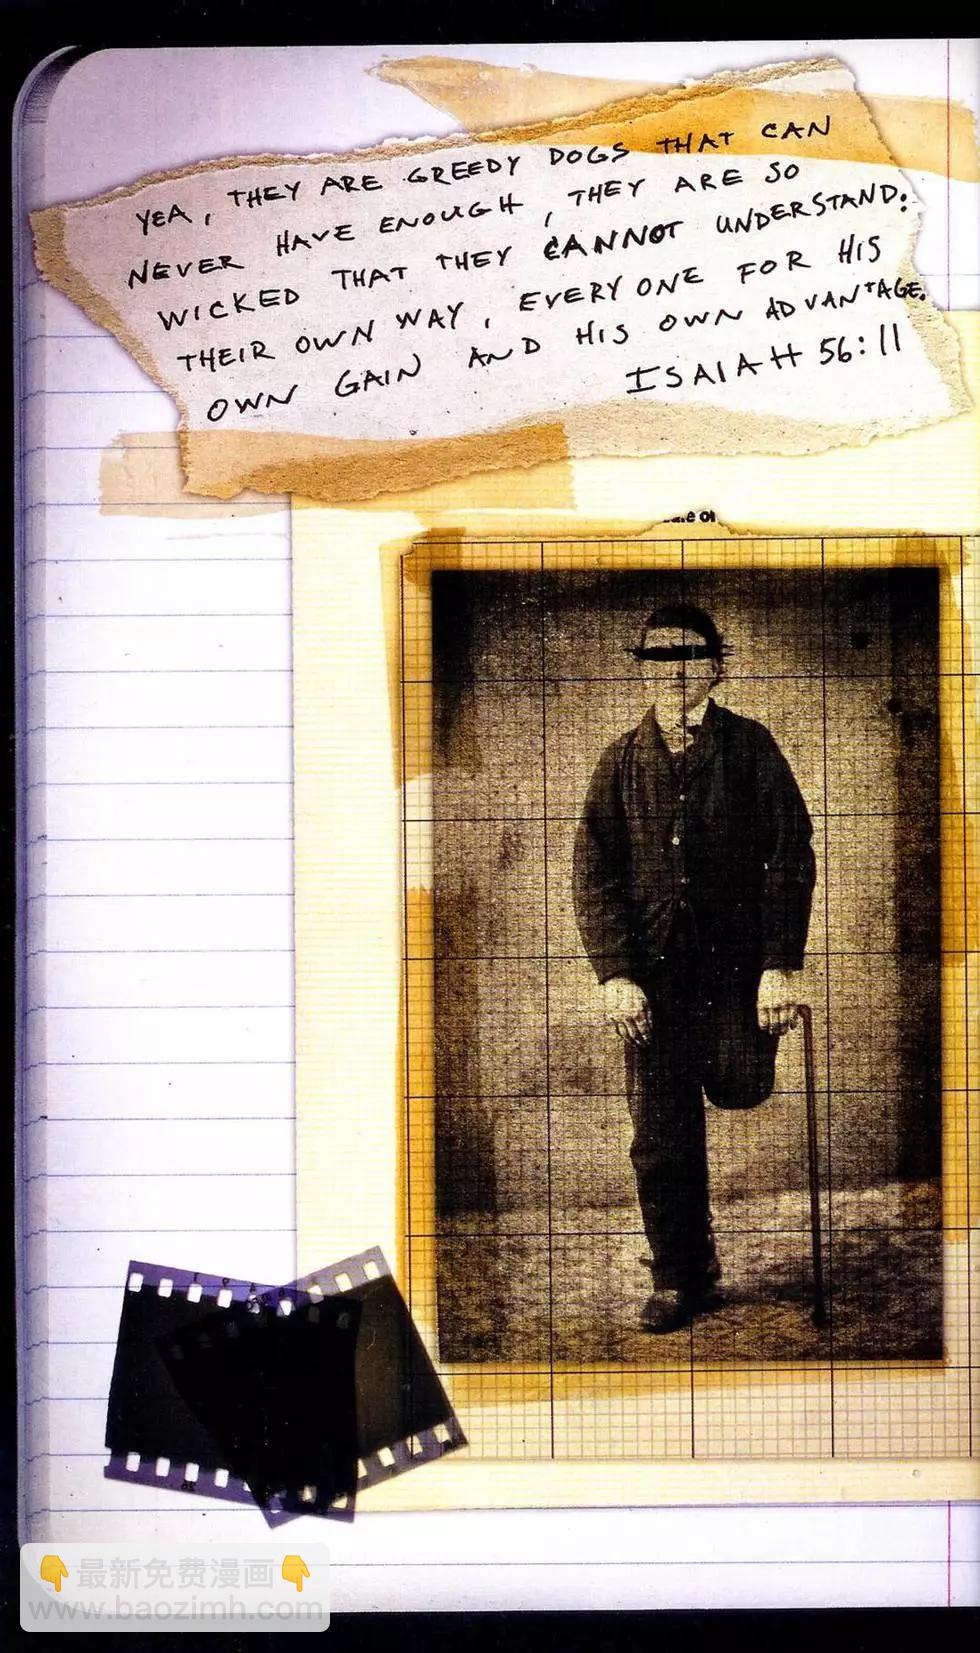 YEA, THEY ARE GREEDY DOGS THAT CAN
NEVER HAVE ENOUGH, THEY ARE SO
WICKED THAT THEY CANNOT UNDERSTAND:
THEIR OWN WAY, EVERYONE FOR HIS
OWN GAIN AND HIS OWN ADVANTAGE.
ISAIAH 56:11
👇最新免费漫画👇
www.baozimh.com